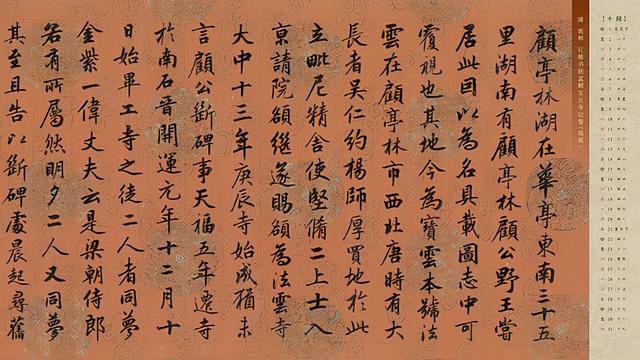 顧亭林湖在華亭東南三十五
里湖南有顧亭林顧公野王嘗
居此因以為名具載圖志中可
覆視也其地今為寶雲本號法
雲在顧亭林市西北唐時有大
長者吳仁約楊師厚買地於此
立毗尼精舍使堅脩二上士入
京請院額繼遂賜額為法雲寺
大中十三年庚辰寺始成猶未
言顧公斷碑事天福五年遷寺
於南石晉開運元年十二月十
日始畢工寺之徒二人者同夢
金紫一偉丈夫云是梁朝侍郎
若有所屬然明夕二人又同夢
其至且告以斷碑處晨起尋舊